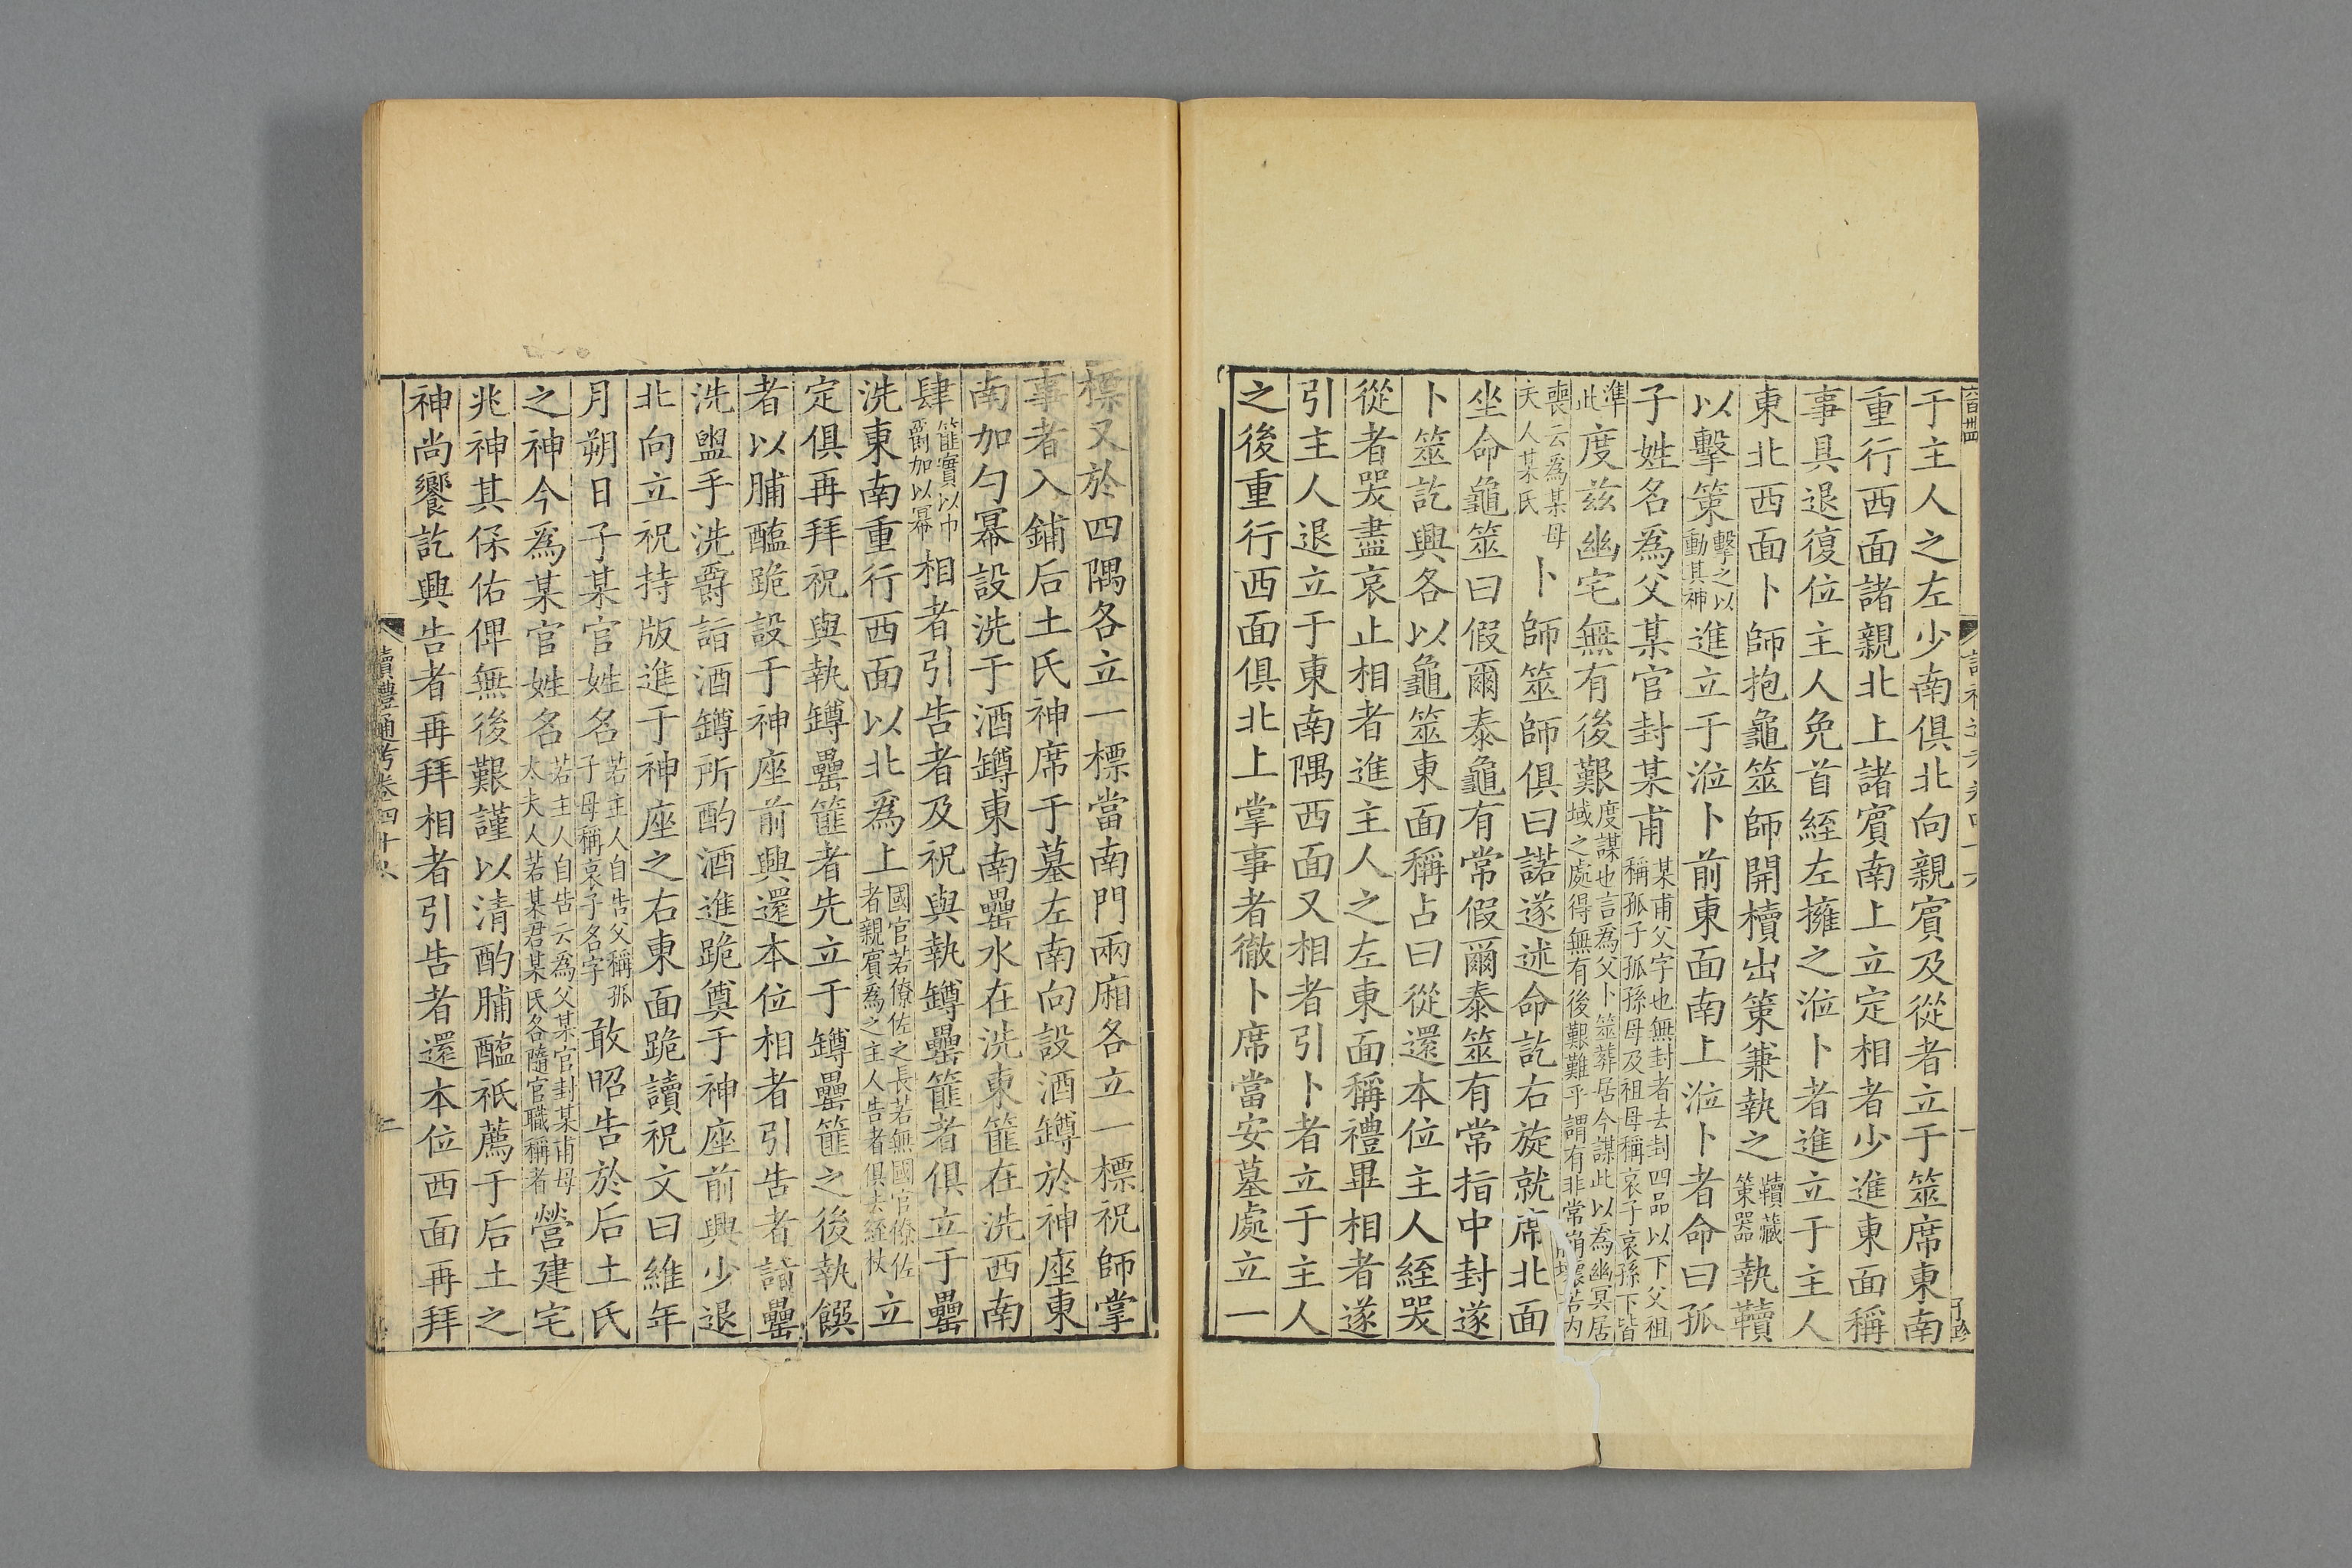 于主人之左少南俱北向親賓及從者立于筮席東南
重行西面諸親北上諸賓南上立定相者少進東面稱
事具退復位主人免首絰左擁之涖卜者進立于主人
東北西面卜師抱龜筮師開櫝出策兼執之櫝藏策器執韇
以擊策擊之以動其神進立于涖卜前東面南上涖卜者命曰孤
子姓名為父某官封某甫某甫父字也無封者去封四品以下父祖稱孤子孤孫母及祖母稱哀子哀孫下皆
準此度茲幽宅無有後艱度謀也言為父卜筮葬居今謀此以為幽冥居域之處得無有後艱難乎謂有非常崩壞若內
喪云為某母夫人某氏卜師筮師俱曰諾遂述命訖右旋就席北面
坐命龜筮曰假爾泰龜有常假爾泰筮有常指中封遂
卜筮訖興各以龜筮東面稱占曰從還本位主人絰哭
從者哭盡哀止相者進主人之左東面稱禮畢相者遂
引主人退立于東南隅西面又相者引卜者立于主人
之後重行西面俱北上掌事者徹卜席當安墓處立一
標又於四隅各立一標當南門兩廂各立一標祝師掌
事者入鋪后土氏神席于墓左南向設酒罇於神座東
南加勺冪設洗于酒罇東南罍水在洗東篚在洗西南
肆篚實以巾爵加以冪相者引告者及祝與執罇罍篚者俱立于罍
洗東南重行西面以北為上國官若僚佐之長若無國官僚佐者親賓為之主人告者俱去絰杖立
定俱再拜祝與執罇罍篚者先立于罇罍篚之後執饌
者以脯醢跪設于神座前興還本位相者引告者詣罍
洗盥手洗爵詣酒罇所酌酒進跪奠于神座前興少退
北向立祝持版進于神座之右東面跪讀祝文曰維年
月朔日子某官姓名若主人自告父稱孤子母稱哀子名字敢昭告於后土氏
之神今為某官姓名若主人自告云為父某官封某甫母太夫人若某君某氏各隨官職稱者營建宅
兆神其保佑俾無後艱謹以清酌脯醢祇薦于后土之
神尚饗訖興告者再拜相者引告者還本位西面再拜
讀禮通考卷四十